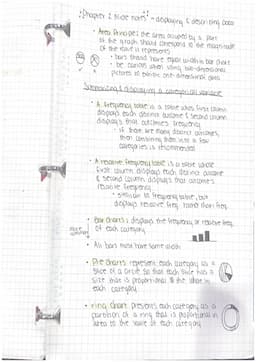 Chapter 2 Slide notes - displaying & describing data
• Area Principle: the area occupied by a part
of the graph should correspond to the magnitude
of the value it represents
• bars should have equal width in bar chart
• be cautious when using two-dimensional
pictures to exhibit one-dimensional data
Summarizing & displaying a categorical variable
• A frequency table is a table whose first column
displays each distinct outcome & second column
displays that outcome's frequency
• if there are many distinct outcomes,
then combining them into a few
categories is recommended
• A relative frequency table is a table whose
first column displays each distinct outcome
& second column displays that outcome's
relative frequency
• similar to frequency table, but
displays relative freq. rather than freq.
• Bar charts: displays the frequency or relative freq.
of each category
more common
• All bars must have same width
• Pie charts represent each category as a
slice of a circle so that each slice has a
size that is proportional to the share in
each category
• ring chart presents each category as a
portion of a ring that is proportional in
area to the value of each category